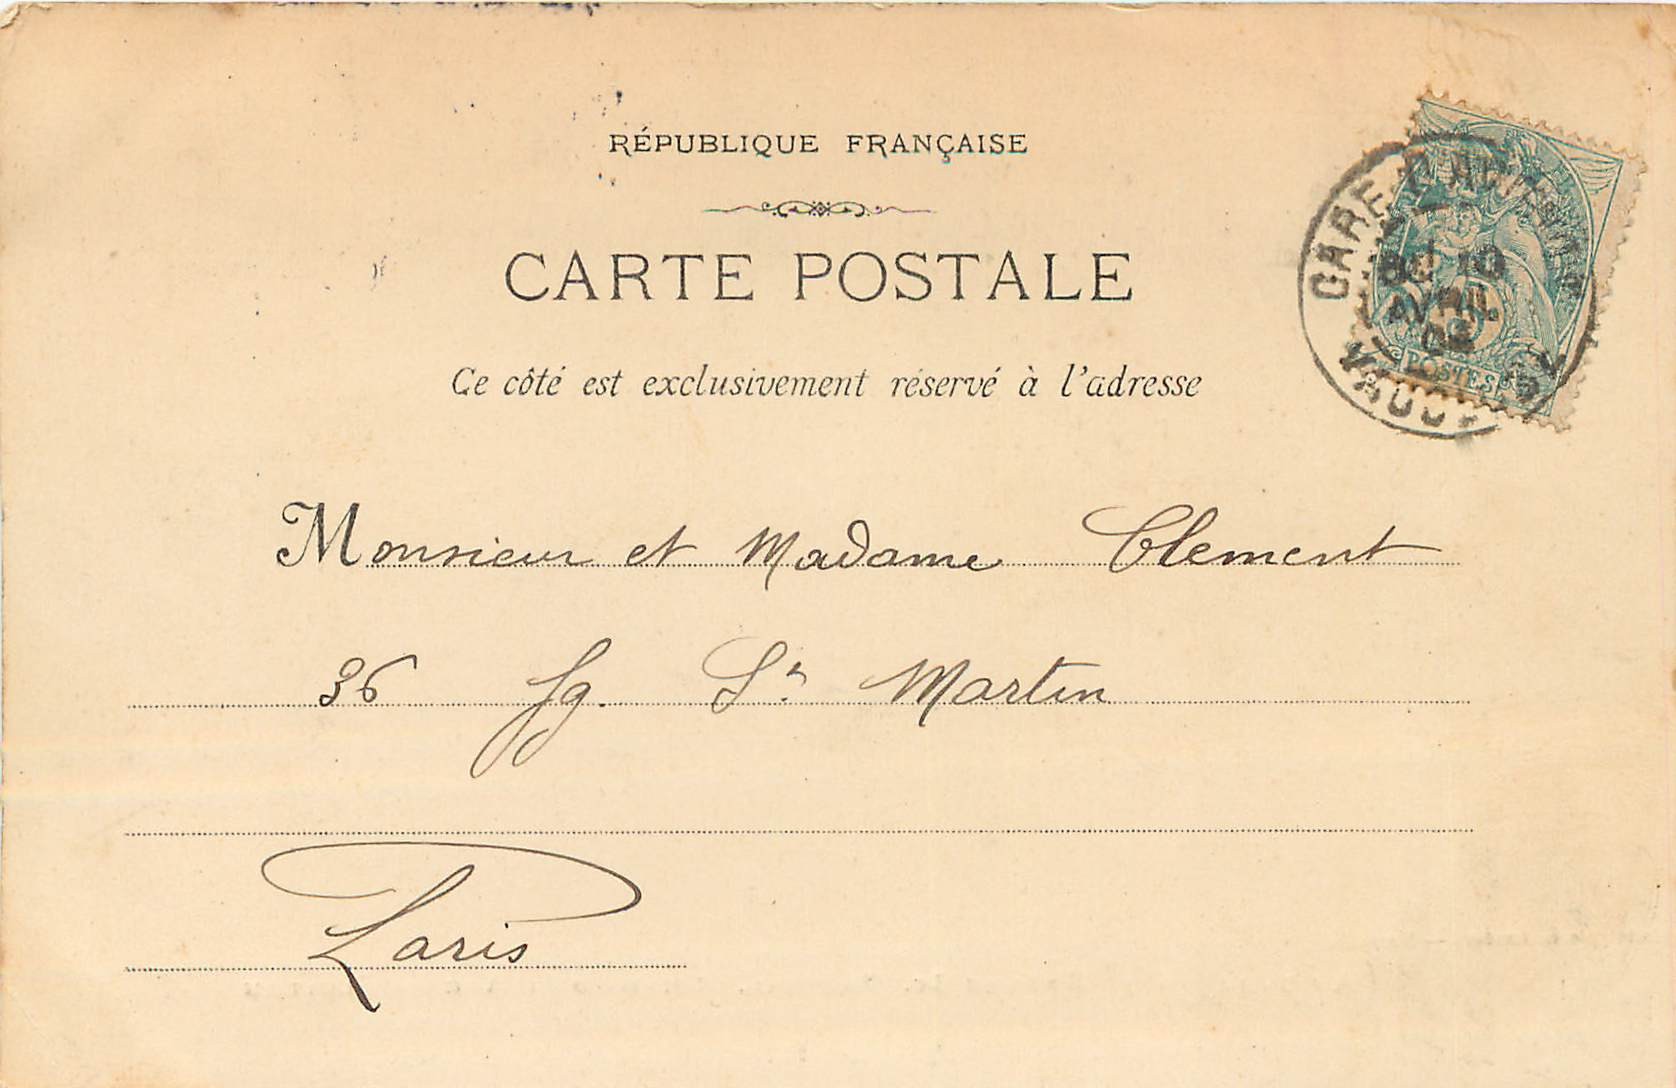 RÉPUBLIQUE FRANÇAISE
CARTE POSTALE
Ce côté est exclusivement réservé à l'adresse
GARE D'AVIGNON
10
AVRIL
POSTES
Monsieur et Madame Clement
36 fg. St Martin
Paris